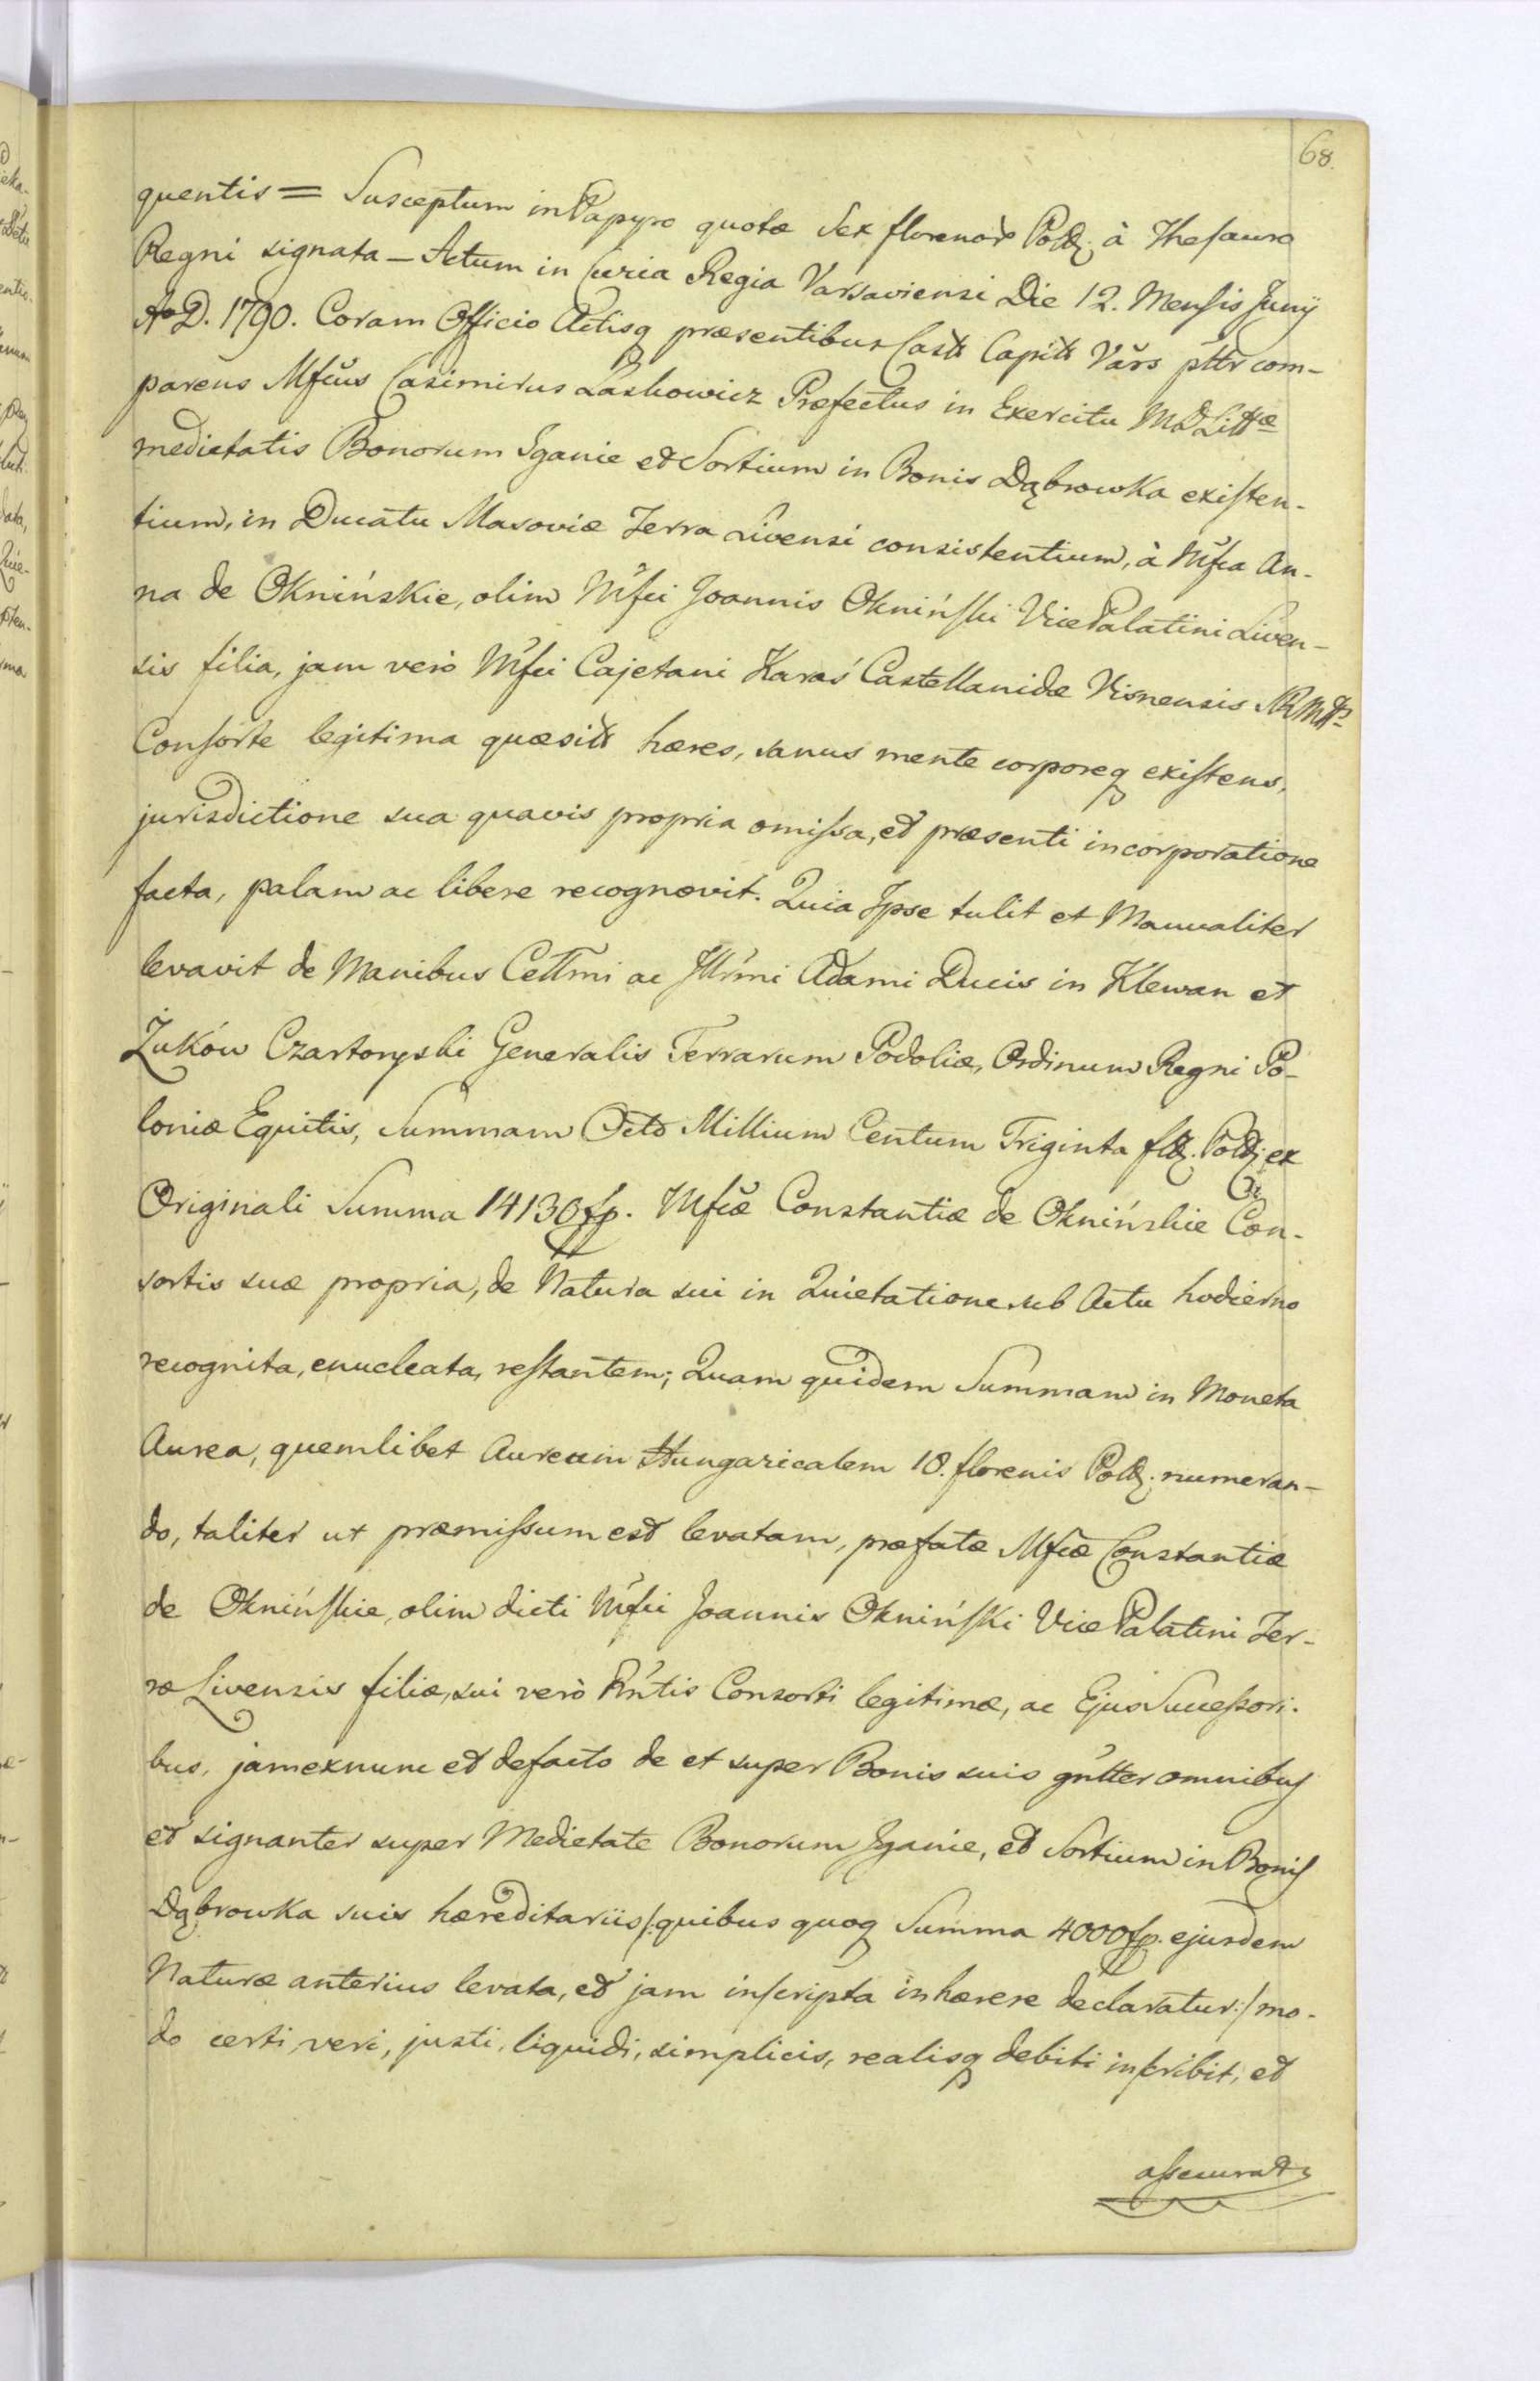 68.
quentis = Susceptum in Papyro quotæ Sex florenor Poll; à Thesauro
Regni signata — Actum in Curia Regia Varsaviensi Die 12. Mensis Junÿ
Ao D. 1790. Coram Officio Actisq præsentibus Castr Capit Vars pttr com-
parens Mfcus Casimirus Laskowicz Præfectus in Exercitu MD Littæ
medietatis Bonorum Iganie et Sortium in Bonis Dąbrowka existen-
tium, in Ducatu Masoviæ Terra Livensi consistentium, à Mfca An-
na de Oknińskie, olim Mfci Joannis Okniński Vice Palatini Liven-
sis filia, jam verò Mfci Cajetani Karaś Castellanidæ Visnensis SRMtts
Consorte legitima quæsitt hæres, sanus mente corporeq existens,
jurisdictione sua quavis propria omissa, et præsenti incorporatione
facta, palam ac libere recognovit. Quia Ipse tulit et Manualiter
levavit de Manibus Cellmi ac Illrmi Adami Ducis in Klewan et
Żuków Czartoryski Generalis Terrarum Podoliæ, Ordinum Regni Po-
loniæ Equitis, Summam Octo Millium Centum Triginta fll. Poll; ex
Originali Summa 14130 fp. Mfcæ Constantiæ de Oknińskie Con-
sortis suæ propria, de Natura sui in Quietatione sub Actu hodierno
recognita, enucleata, restantem; Quam quidem Summam in Moneta
Aurea, quemlibet Aureum Hungaricalem 18. florenis Poll; numeran-
do, taliter ut præmissum est levatam, præfatæ Mfcæ Constantiæ
de Oknińskie, olim dicti Mfci Joannis Okniński Vice Palatini Ter-
ræ Livensis filiæ, sui verò Rntis Consorti legitimæ, ac Ejus Successori-
bus, jam exnunc et defacto de et super Bonis suis gntter omnibus
et signanter super Medietate Bonorum Iganie, et Sortium in Bonis
Dąbrowka suis hæreditariis /: quibus quoq Summa 4000 fp. ejusdem
Naturæ anterius levata, et jam inscripta inhærere declaratur :/ mo-
do certi, veri, justi, liquidi, simplicis, realisq debiti inscribit, et
assecurat;